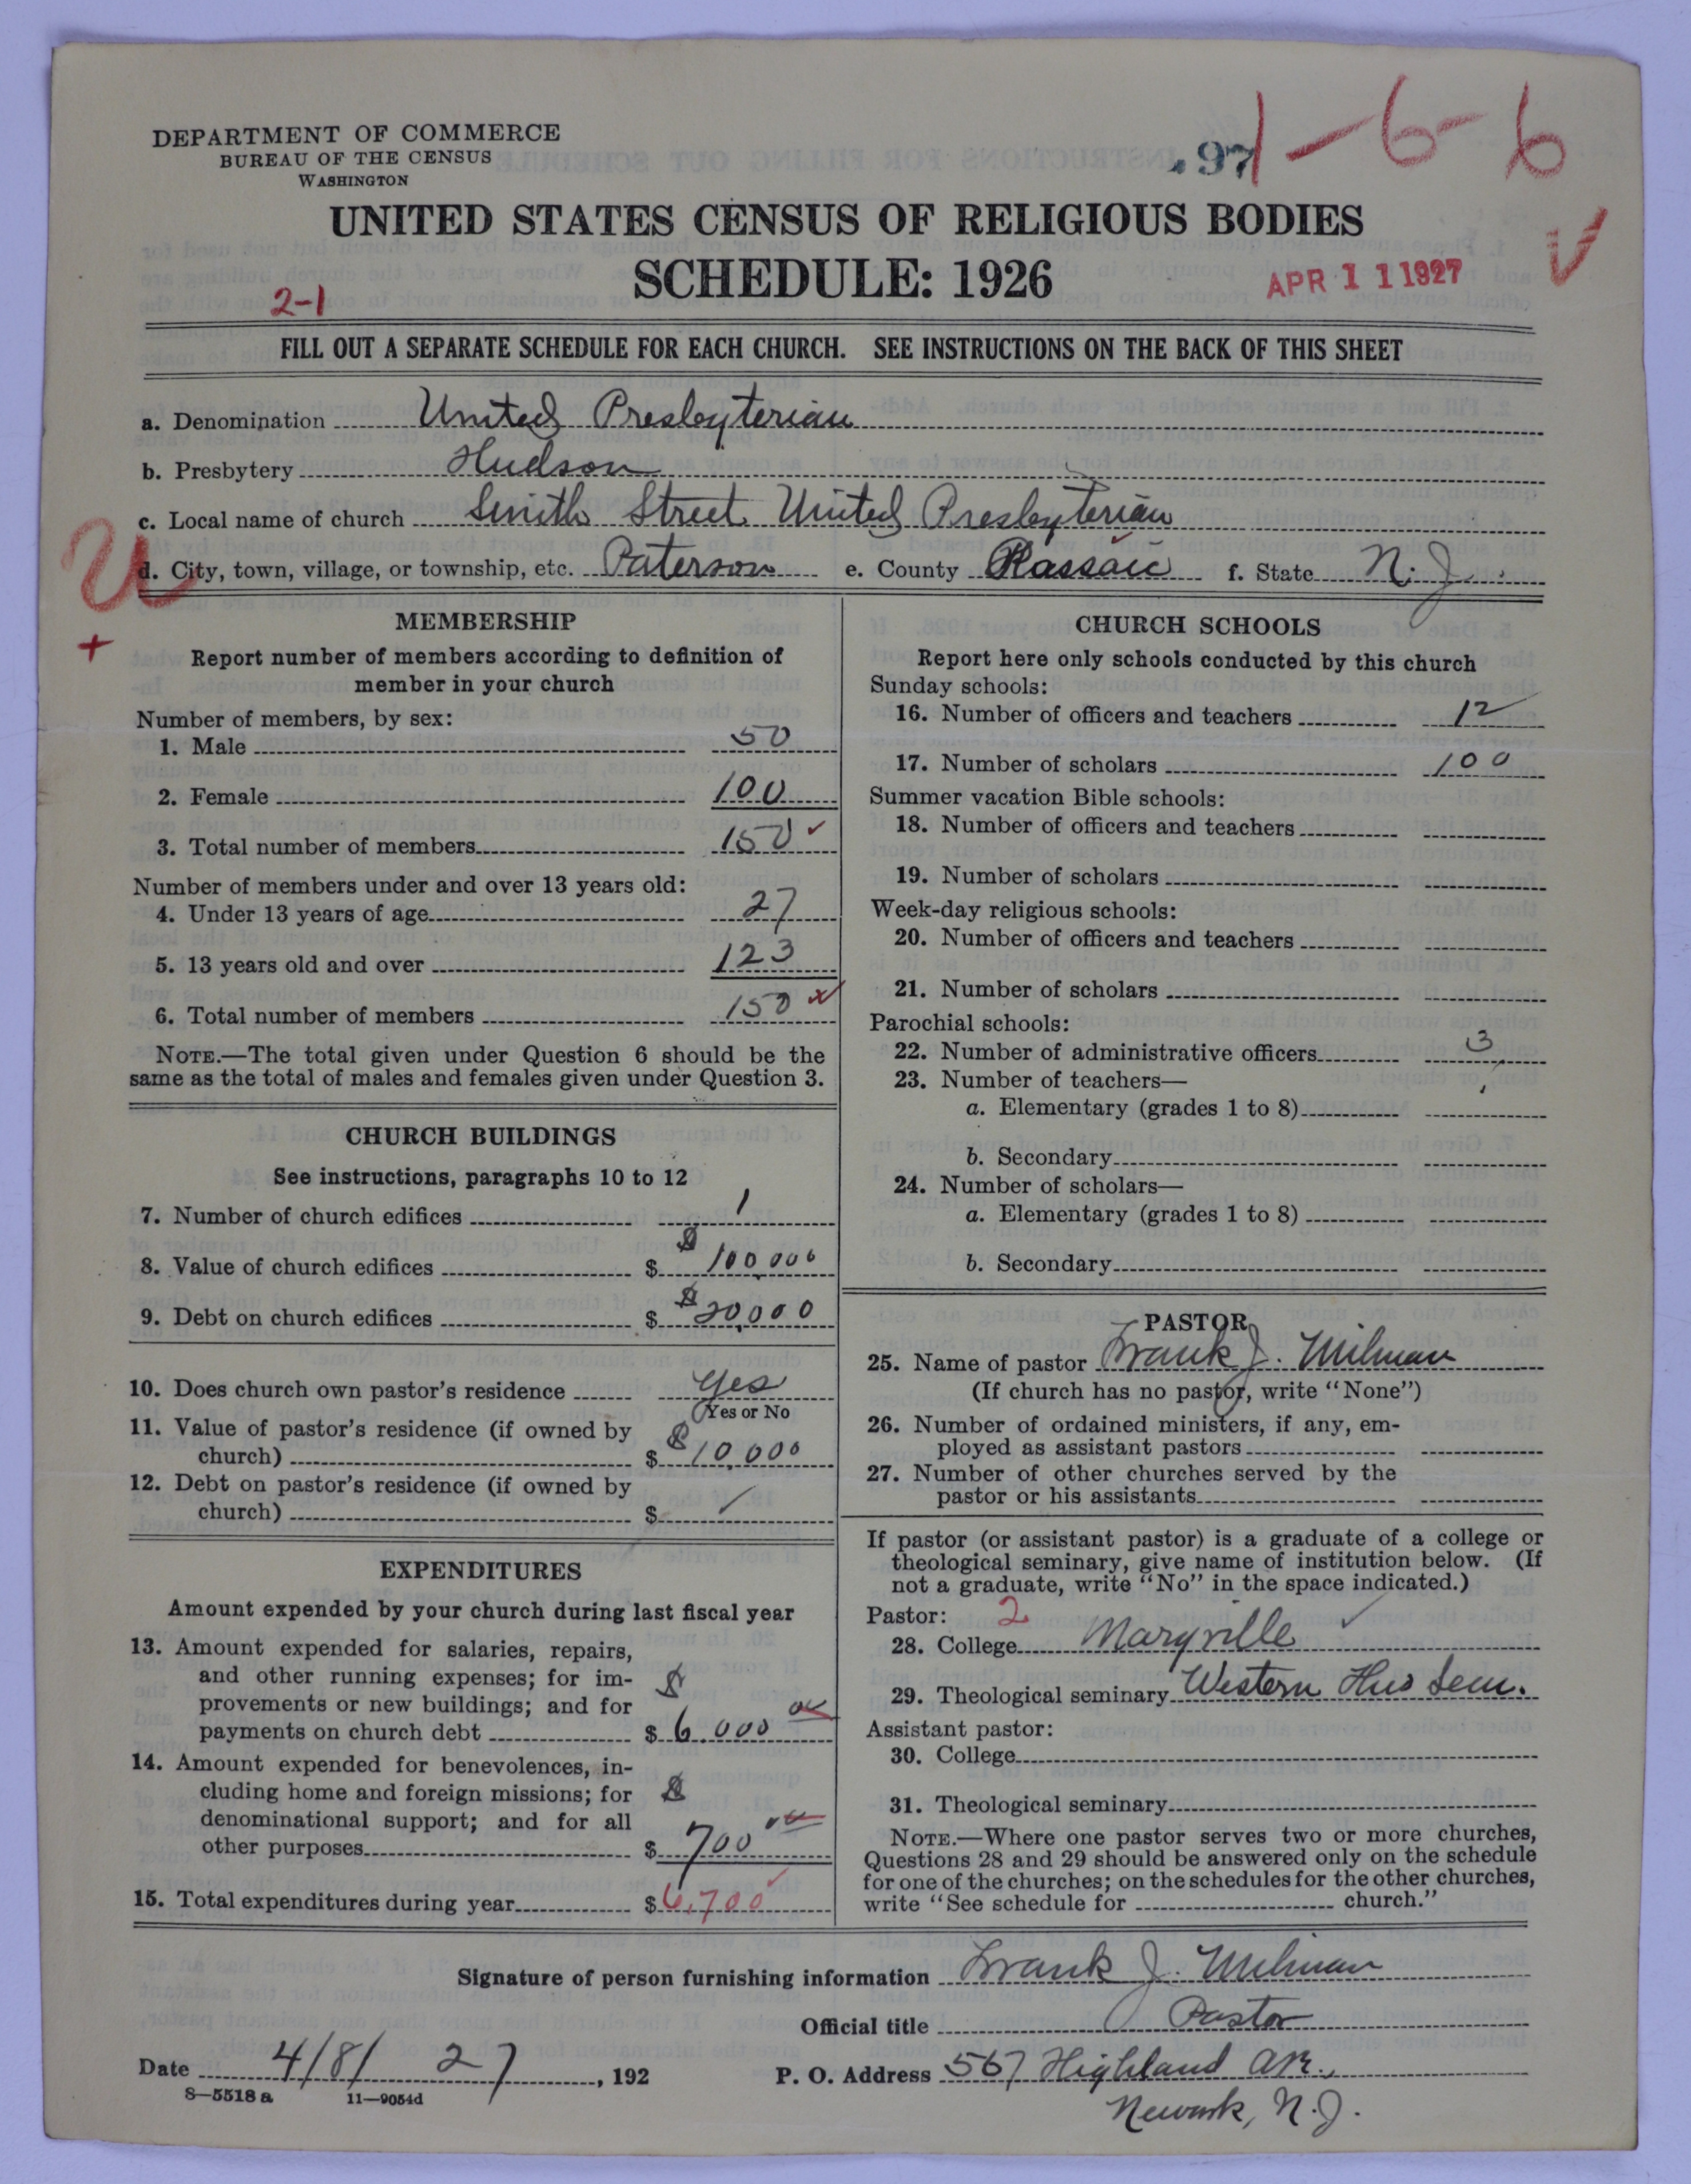 DEPARTMENT OF COMMERCE
BUREAU OF THE CENSUS
WASHINGTON
97
1-6-6
UNITED STATES CENSUS OF RELIGIOUS BODIES
SCHEDULE: 1926
APR 11 1927
2-1
FILL OUT A SEPARATE SCHEDULE FOR EACH CHURCH. SEE INSTRUCTIONS ON THE BACK OF THIS SHEET
a. Denomination United Presbyterian
b. Presbytery Hudson
c. Local name of church Smith Street United Presbyterian
d. City, town, village, or township, etc. Paterson e. County Passaic f. State N. J.
U
+
MEMBERSHIP
Report number of members according to definition of
member in your church
Number of members, by sex:
1. Male 50
2. Female 100
3. Total number of members 150 ✓
Number of members under and over 13 years old:
4. Under 13 years of age 27
5. 13 years old and over 123
6. Total number of members 150
NOTE.—The total given under Question 6 should be the
same as the total of males and females given under Question 3.
CHURCH BUILDINGS
See instructions, paragraphs 10 to 12
7. Number of church edifices 1
8. Value of church edifices $ $100,000
9. Debt on church edifices $ $20,000
10. Does church own pastor's residence yes
Yes or No
11. Value of pastor's residence (if owned by
church) $ $10,000
12. Debt on pastor's residence (if owned by
church) $ ✓
EXPENDITURES
Amount expended by your church during last fiscal year
13. Amount expended for salaries, repairs,
and other running expenses; for im-
provements or new buildings; and for $
payments on church debt $ 6.000 00
14. Amount expended for benevolences, in-
cluding home and foreign missions; for $
denominational support; and for all
other purposes $ 700 00
15. Total expenditures during year $ 6,700 ✓
CHURCH SCHOOLS
Report here only schools conducted by this church
Sunday schools:
16. Number of officers and teachers 12
17. Number of scholars 100
Summer vacation Bible schools:
18. Number of officers and teachers
19. Number of scholars
Week-day religious schools:
20. Number of officers and teachers
21. Number of scholars
Parochial schools:
22. Number of administrative officers 3
23. Number of teachers—
a. Elementary (grades 1 to 8)
b. Secondary
24. Number of scholars—
a. Elementary (grades 1 to 8)
b. Secondary
PASTOR
25. Name of pastor Frank J. Milman
(If church has no pastor, write "None")
26. Number of ordained ministers, if any, em-
ployed as assistant pastors
27. Number of other churches served by the
pastor or his assistants
If pastor (or assistant pastor) is a graduate of a college or
theological seminary, give name of institution below. (If
not a graduate, write "No" in the space indicated.)
Pastor: 2
28. College Maryville ✓
29. Theological seminary Western Sem.
Assistant pastor:
30. College
31. Theological seminary
NOTE.—Where one pastor serves two or more churches,
Questions 28 and 29 should be answered only on the schedule
for one of the churches; on the schedules for the other churches,
write "See schedule for church."
Signature of person furnishing information Frank J. Milman
Official title Pastor
Date 4/8/ 27, 192
P. O. Address 567 Highland Ave.,
Newark, N.J.
8—5518 a 11—9054d